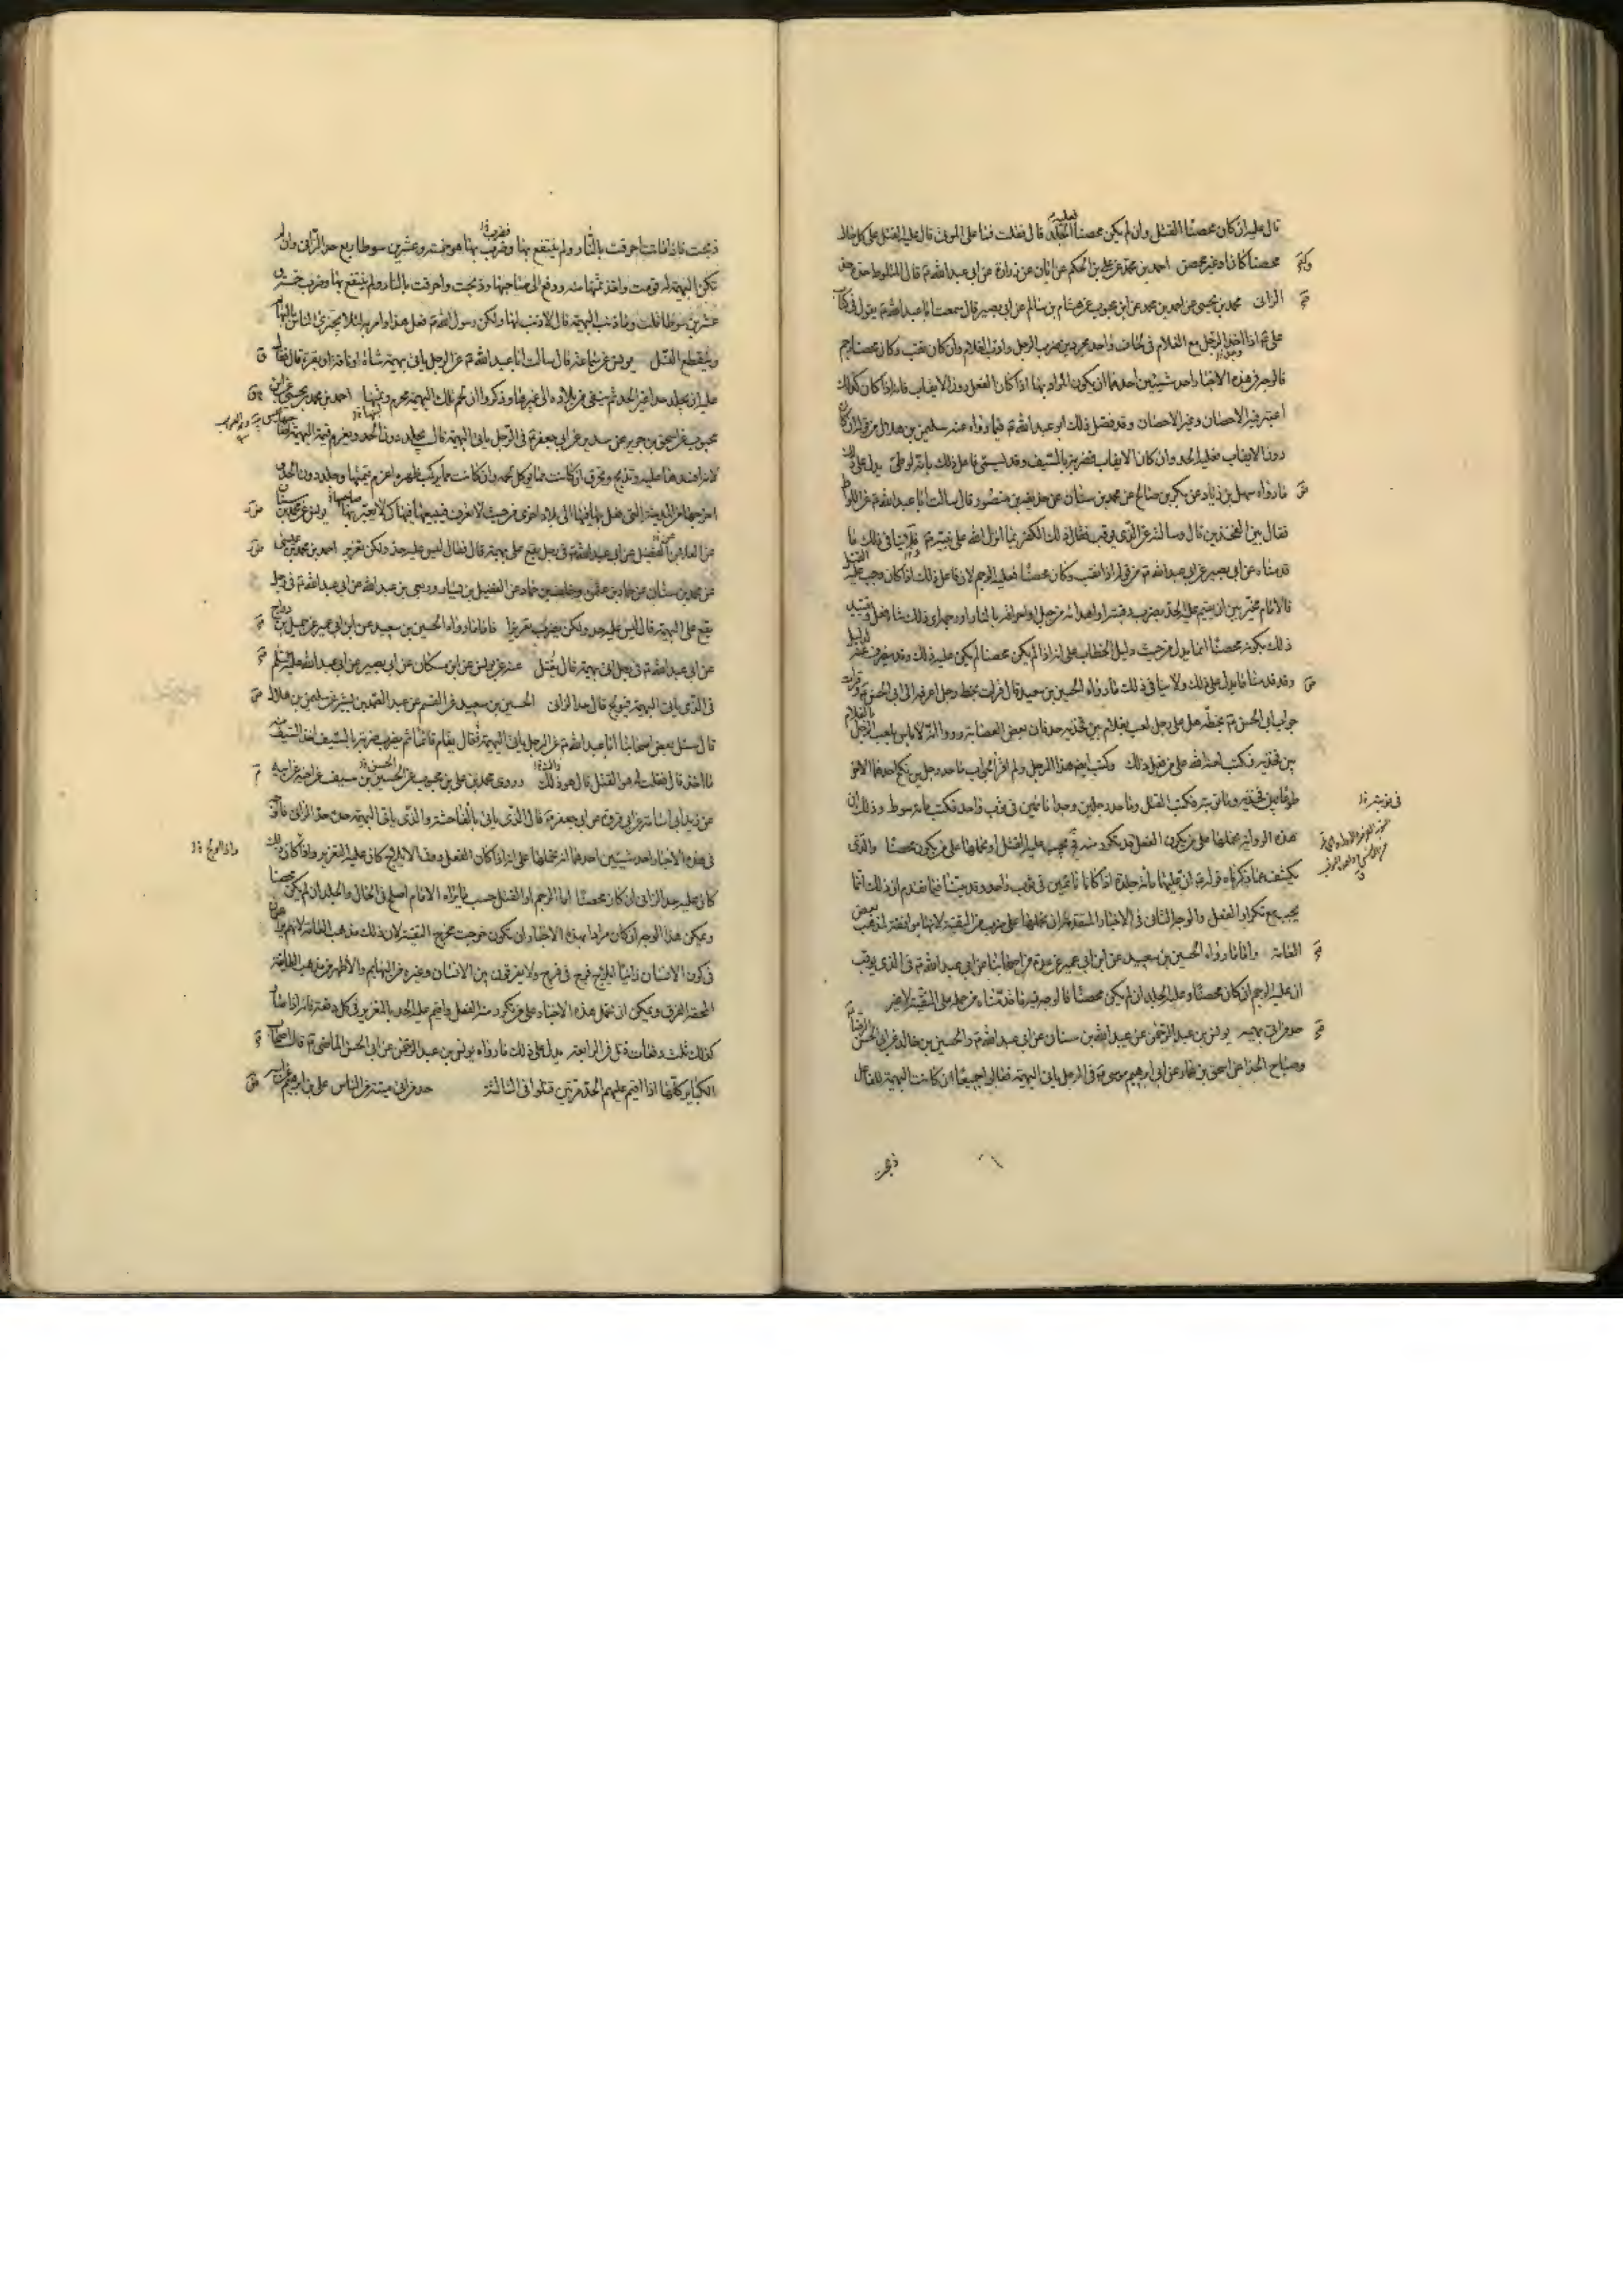 قال عليه ان كان محصنا القتل وان لم يكن محصنا فعليه الجلد قال فقلت فما على الموتى قال عليه القتل على كل حال
محصنا كان او غير محصن احمد بن محمد عن علي بن الحكم عن ابان عن زرارة عن ابي عبد الله ع قال المتلوط حده حد
الزاني محمد بن يحيى عن احمد بن محمد عن ابن محبوب عن هشام بن سالم عن ابي بصير قال سمعت ابا عبد الله ع يقول في كتاب
علي ع اذا اخذ الرجل مع الغلام في لحاف واحد مجردين ضرب الرجل وادب الغلام وان كان ثقب وكان محصنا رجم
فالوجه في هذه الاخبار احد شيئين احدهما ان يكون المراد بها اذا كان الفعل دون الايقاب فانه اذا كان كذلك
اعتبر فيه الاحصان وغير الاحصان وقد فصل ذلك ابو عبد الله ع فيما رواه عنه سليمن بن هلال من قوله ان كان
دون الايقاب فعليه الحد وان كان الايقاب فضربة بالسيف وقد يسمى فاعل ذلك بانه لوطي يدل على ذلك
ما رواه سهل بن زياد عن بكر بن صالح عن محمد بن سنان عن حذيفة بن منصور قال سالت ابا عبد الله ع عن اللواط
فقال بين الفخذين قال وسالته عن الذي يوقب فقال ذلك الكفر بما انزل الله على نبيه ع فاما في ذلك ما
قدمناه عن ابي بصير عن ابي عبد الله ع من قوله اذا ثقب وكان محصنا فعليه الرجم لان فاعل ذلك اذا كان وجب عليه القتل
فالامام مخير بين ان يقيم عليه الحد بضرب رقبته او اهدائه من جبل او احراقه بالنار او رجمه اي ذلك شاء فعل وتقييد
ذلك بكونه محصنا انما يدل من حيث دليل الخطاب على انه اذا لم يكن محصنا لم يكن عليه ذلك وقد ينصرف عنه لدليل
وقد قدمنا ما يدل على ذلك ولا ينافي ذلك ما رواه الحسين بن سعيد قال قرات بخط رجل اعرفه الى ابي الحسن ع وقرات
جواب ابي الحسن ع بخطه هل على رجل لعب بغلام بين فخذيه حد فان بعض العصابة روى انه لا باس بلعب الرجل بالغلام
بين فخذيه فكتب لعنة الله على من فعل ذلك وكتب ايضا هذا الرجل ولم ار الجواب ما حد رجلين نكح احدهما الاخر
طوعا بين فخذيه وما توبته فكتب القتل وما حد رجلين وجدا نائمين في ثوب واحد فكتب مائة سوط وذلك ان
هذه الرواية نحملها على من يكون الفعل قد تكرر منه فح يجب عليه القتل او نحملها على من يكون محصنا والذي
يكشف عما ذكرناه قوله ع ان عليهما مائة جلدة اذا كانا نائمين في ثوب واحد وقد بينا فيما تقدم ان ذلك انما
يجب مع تكرار الفعل والوجه الثاني في الاخبار المتقدمة ان نحملها على ضرب من التقية لانها موافقة لمذهب بعض
العامة واما ما رواه الحسين بن سعيد عن ابن ابي عمير عن عدة من اصحابنا عن ابي عبد الله ع في الذي يوقب
ان عليه الرجم ان كان محصنا وعليه الجلد ان لم يكن محصنا فالوجه فيه ما قدمناه من حمله على التقية لا غير
حد من اتى بهيمة يونس بن عبد الرحمن عن عبد الله بن سنان عن ابي عبد الله ع والحسين بن خالد عن ابي الحسن الرضا ع
وصباح الحذاء عن اسحق بن عمار عن ابي ابرهيم موسى ع في الرجل ياتي البهيمة فقالوا جميعا ان كانت البهيمة للفاعل
ذبحت
ذبحت فاذا ماتت احرقت بالنار ولم ينتفع بها وضرب بها هو خمسة وعشرين سوطا ربع حد الزاني وان لم
تكن البهيمة له قومت واخذ ثمنها منه ودفع الى صاحبها وذبحت واحرقت بالنار ولم ينتفع بها وضرب خمسة و
عشرين سوطا فقلت وما ذنب البهيمة قال لا ذنب لها ولكن رسول الله ع فعل هذا وامر به لئلا يجترئ الناس بالبهائم
وينقطع النسل يونس عن سماعة قال سالت ابا عبد الله ع عن الرجل ياتي بهيمة شاة او ناقة او بقرة قال فقال
عليه ان يجلد حدا غير الحد ثم ينفى من بلاده الى غيرها وذكروا ان لحم تلك البهيمة محرم وثمنها احمد بن محمد بن عيسى عن ابن
محبوب عن اسحق بن جرير عن سدير عن ابي جعفر ع في الرجل ياتي البهيمة قال يجلد دون الحد ويغرم قيمة البهيمة لصاحبها
لانه افسدها عليه وتذبح وتحرق ان كانت مما يوكل لحمه وان كانت مما يركب ظهره اغرم قيمتها وجلد دون الحد و
اخرجها من المدينة التي فعل بها فيها الى بلاد اخرى من حيث لا تعرف فيبيعها فيها كيلا يعير بها صاحبها يونس عن محمد بن سنان
عن العلاء بن الفضيل عن ابي عبد الله ع في رجل يقع على بهيمة قال فقال ليس عليه حد ولكن تعزير احمد بن محمد بن عيسى
عن محمد بن سنان عن حماد بن عثمن وخلف بن حماد عن الفضيل بن يسار وربعي بن عبد الله عن ابي عبد الله ع في رجل
يقع على البهيمة قال ليس عليه حد ولكن يضرب تعزيرا فاما ما رواه الحسين بن سعيد عن ابن ابي عمير عن جميل بن دراج
عن ابي عبد الله ع في رجل اتى بهيمة قال يقتل عنه عن يونس عن ابن مسكان عن ابي بصير عن ابي عبد الله عليه السلم
في الذي ياتي البهيمة فيولج قال حد الزاني الحسين بن سعيد عن القسم عن عبد الصمد بن بشير عن سليمن بن هلال
قال سئل بعض اصحابنا ابا عبد الله ع عن الرجل ياتي البهيمة فقال يقام قائما ثم يضرب ضربة بالسيف اخذ السيف منه
ما اخذ قال فقلت هو القتل قال هو ذلك وروى محمد بن علي بن محبوب عن الحسين بن سيف عن اخيه عن ابيه
عن زيد ابي اسامة عن ابي فروة عن ابي جعفر ع قال الذي ياتي بالفاحشة والذي ياتي البهيمة حده حد الزاني فالوجه
في هذه الاخبار احد شيئين احدهما ان نحملها على انه اذا كان الفعل دون الايلاج كان عليه التعزير واذا كان ذلك
كان عليه حد الزاني ان كان محصنا اما الرجم او القتل حسب ما يراه الامام اصلح في الحال والجلد ان لم يكن محصنا
ويمكن هذا الوجه ان كان مرادا بهذه الاخبار ان تكون خرجت مخرج التقية لان ذلك مذهب العامة لانهم يراعون
في كون الانسان زانيا ايلاج فرج في فرج ولا يفرقون بين الانسان وغيره من البهائم والاظهر من مذهب الطائفة
المحقة الفرق ويمكن ان نحمل هذه الاخبار على من تكرر منه الفعل واقيم عليه الحد بالتعزير في كل دفعة فانه اذا صار
كذلك ثلث دفعات قتل في الرابعة يدل على ذلك ما رواه يونس بن عبد الرحمن عن ابي الحسن الماضي ع قال اصحاب
الكبائر كلها اذا اقيم عليهم الحد مرتين قتلوا في الثالثة حد من اتى ميتة من الناس علي بن ابرهيم عن ابيه